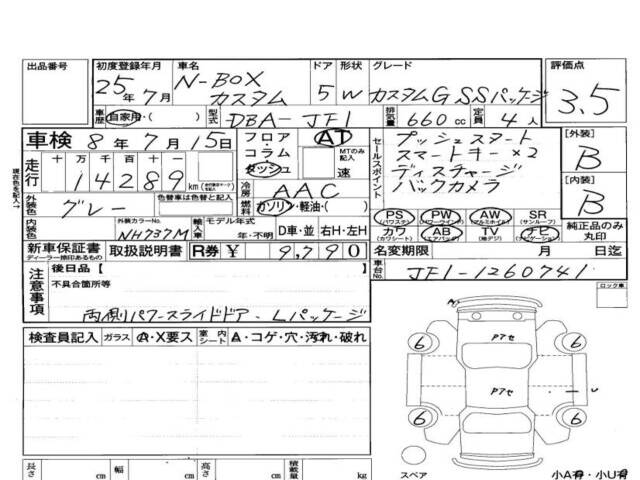 出品番号 初度登録年月 車名 ドア 形状 グレード 評価点
25年7月 N-BOX カスタム 5 W カスタムG SSパッケージ 3.5
車歴 自家用・( ) 型式 DBA-JF1 排気量 660cc 定員 4人
車検 8年7月15日 フロア・コラム・ダッシュ AT MTのみ記入 速
セールスポイント プッシュスタート
スマートキー×2
ディスチャージ
バックカメラ
[外装] B
[内装] B
現在色を記入→
走行 十万 万 千 百 十 一
14289 km
冷房 AAC
外装色 グレー 色替車は色替と記入 燃料 ガソリン・軽油・( )
PS (パワステ) PW (パワーウインド) AW (アルミホイル) SR (サンルーフ) 純正品のみ丸印
カワ (カワシート) AB (エアバッグ) TV (地デジ) ナビ (ナビゲーション)
内装色 外装カラーNo. NH737M 輸入車 モデル年式 年・不明 D車・並 右H・左H
新車保証書 ディーラー捺印あるもの 取扱説明書 R券 ¥ 9,790 名変期限 月 日迄
注意事項 後日品【 】 車台No. JF1-1260741
不具合箇所等 ロック車
両側パワースライドドア・Lパッケージ
検査員記入 ガラス A・X要ス 室内シート A・コゲ・穴・汚れ・破れ
6 Pアセ 6
Pアセ U
6 6
スペア 小A有・小U有
長さ cm 幅 cm 高さ cm 積載量 kg